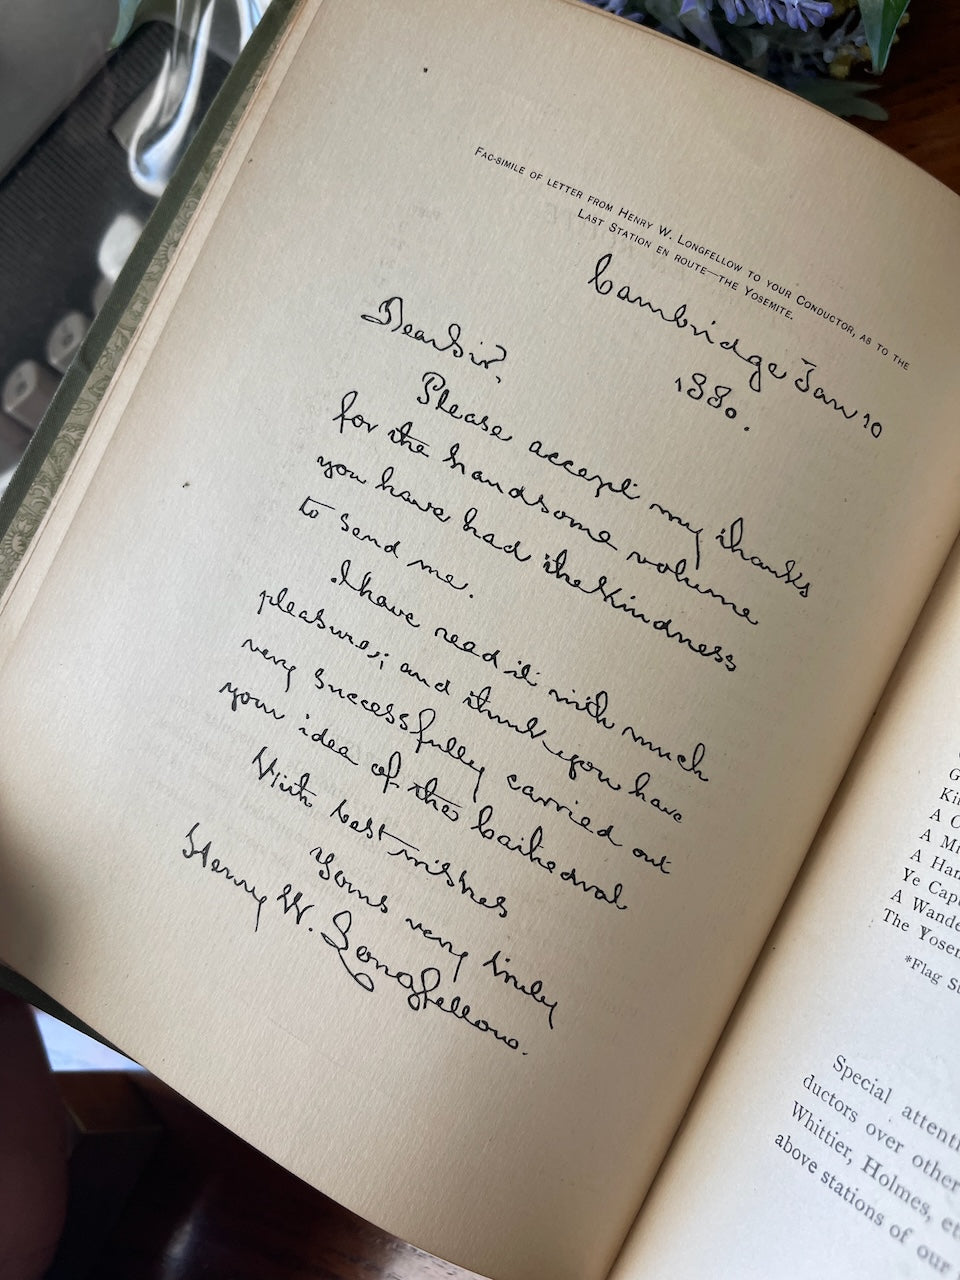 FAC-SIMILE OF LETTER FROM HENRY W. LONGFELLOW TO YOUR CONDUCTOR, AS TO THE
LAST STATION EN ROUTE—THE YOSEMITE.
Cambridge Jan 10
1880.
Dear Sir,
Please accept my thanks
for the handsome volume
you have had the kindness
to send me.
I have read it with much
pleasure; and think you have
very successfully carried out
your idea of the Cathedral
With best wishes
Yours very truly
Henry W. Longfellow.
A C
A M
A Han
Ye Cap
A Wande
The Yosem
*Flag S
Special attenti
ductors over other
Whittier, Holmes, et
above stations of our